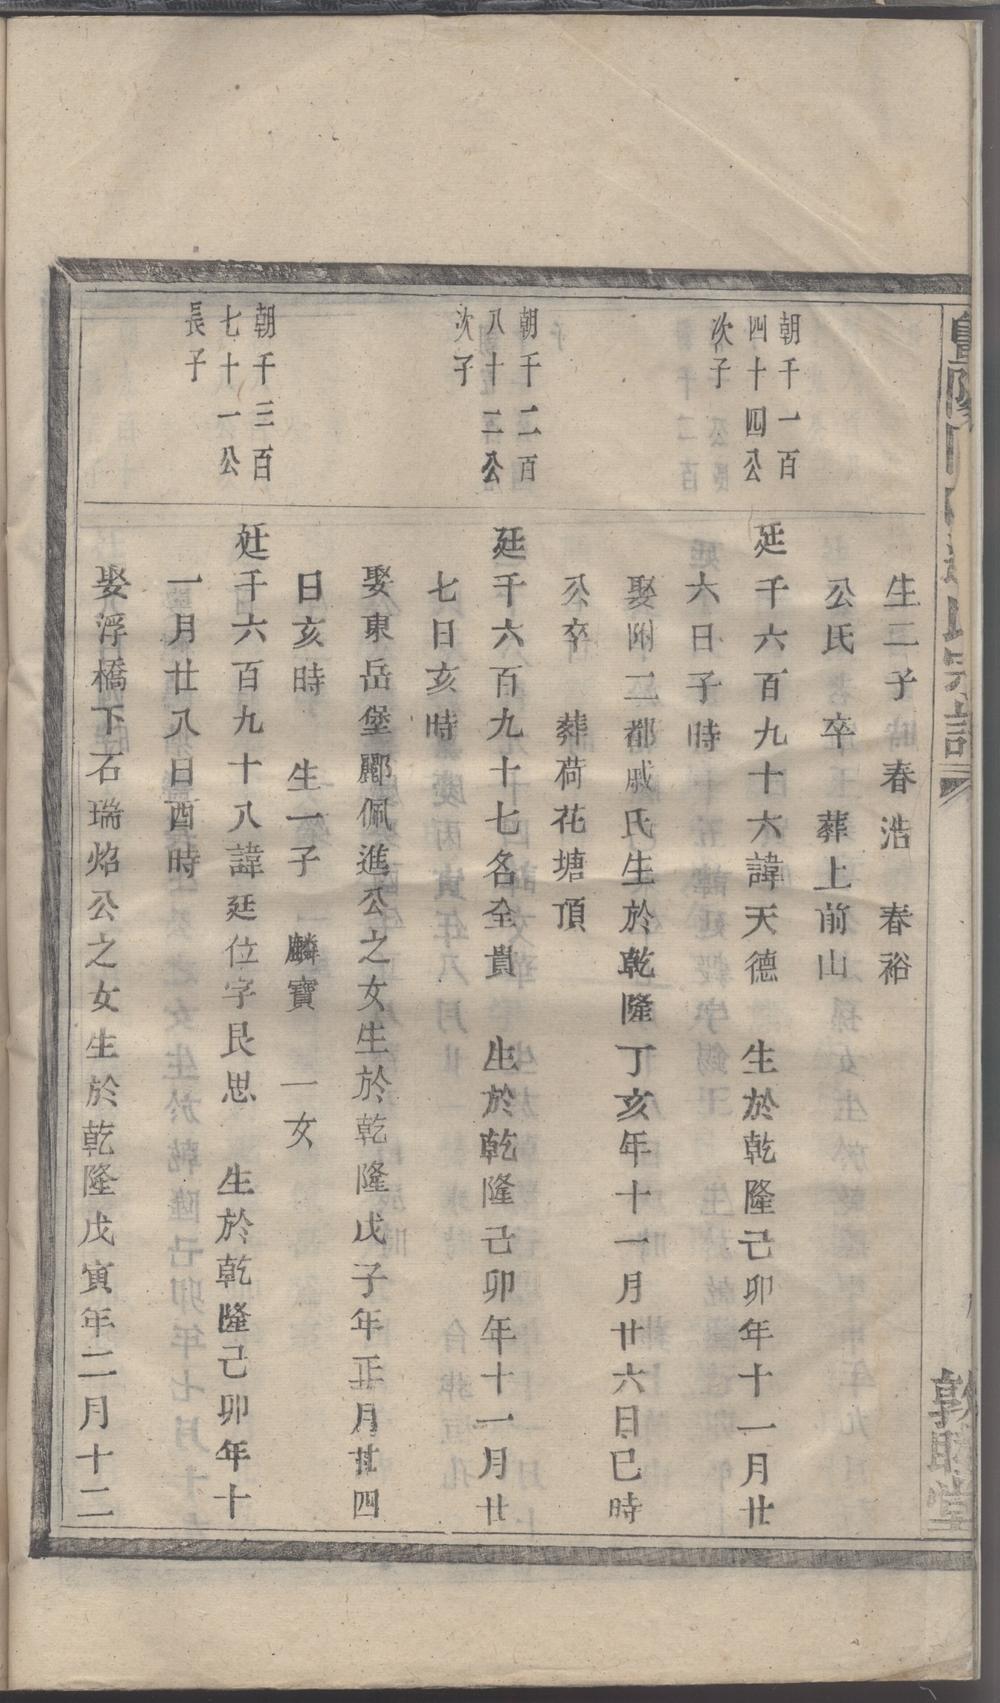 生二子春浩　春裕
公氏　卒　葬上前山
朝千一百
四十四公
次子
廷千六百九十六諱天德　生於乾隆己卯年十一月廿
六日子時
娶附二都戚氏生於乾隆丁亥年十一月廿六日巳時
公卒　葬荷花塘頂
朝千二百
八十二公
次子
廷千六百九十七名全貴　生於乾隆己卯年十一月廿
七日亥時
娶東岳堡酈佩進公之女生於乾隆戊子年正月廿四
日亥時　生一子　麟寶　一女
朝千三百
七十一公
長子
廷千六百九十八諱廷位字艮思　生於乾隆己卯年十
一月廿八日酉時
娶浮橋下石瑞焰公之女生於乾隆戊寅年二月十二
敦睦堂